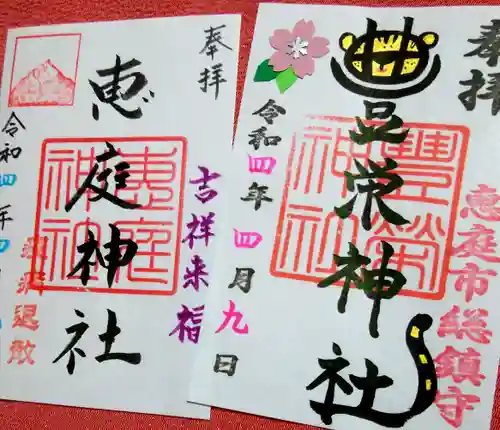 奉拝
恵庭神社
恵庭神社
吉祥来福
令和四年四
退散
奉拝
豊栄神社
豊榮神社
令和四年四月九日
恵庭市総鎮守